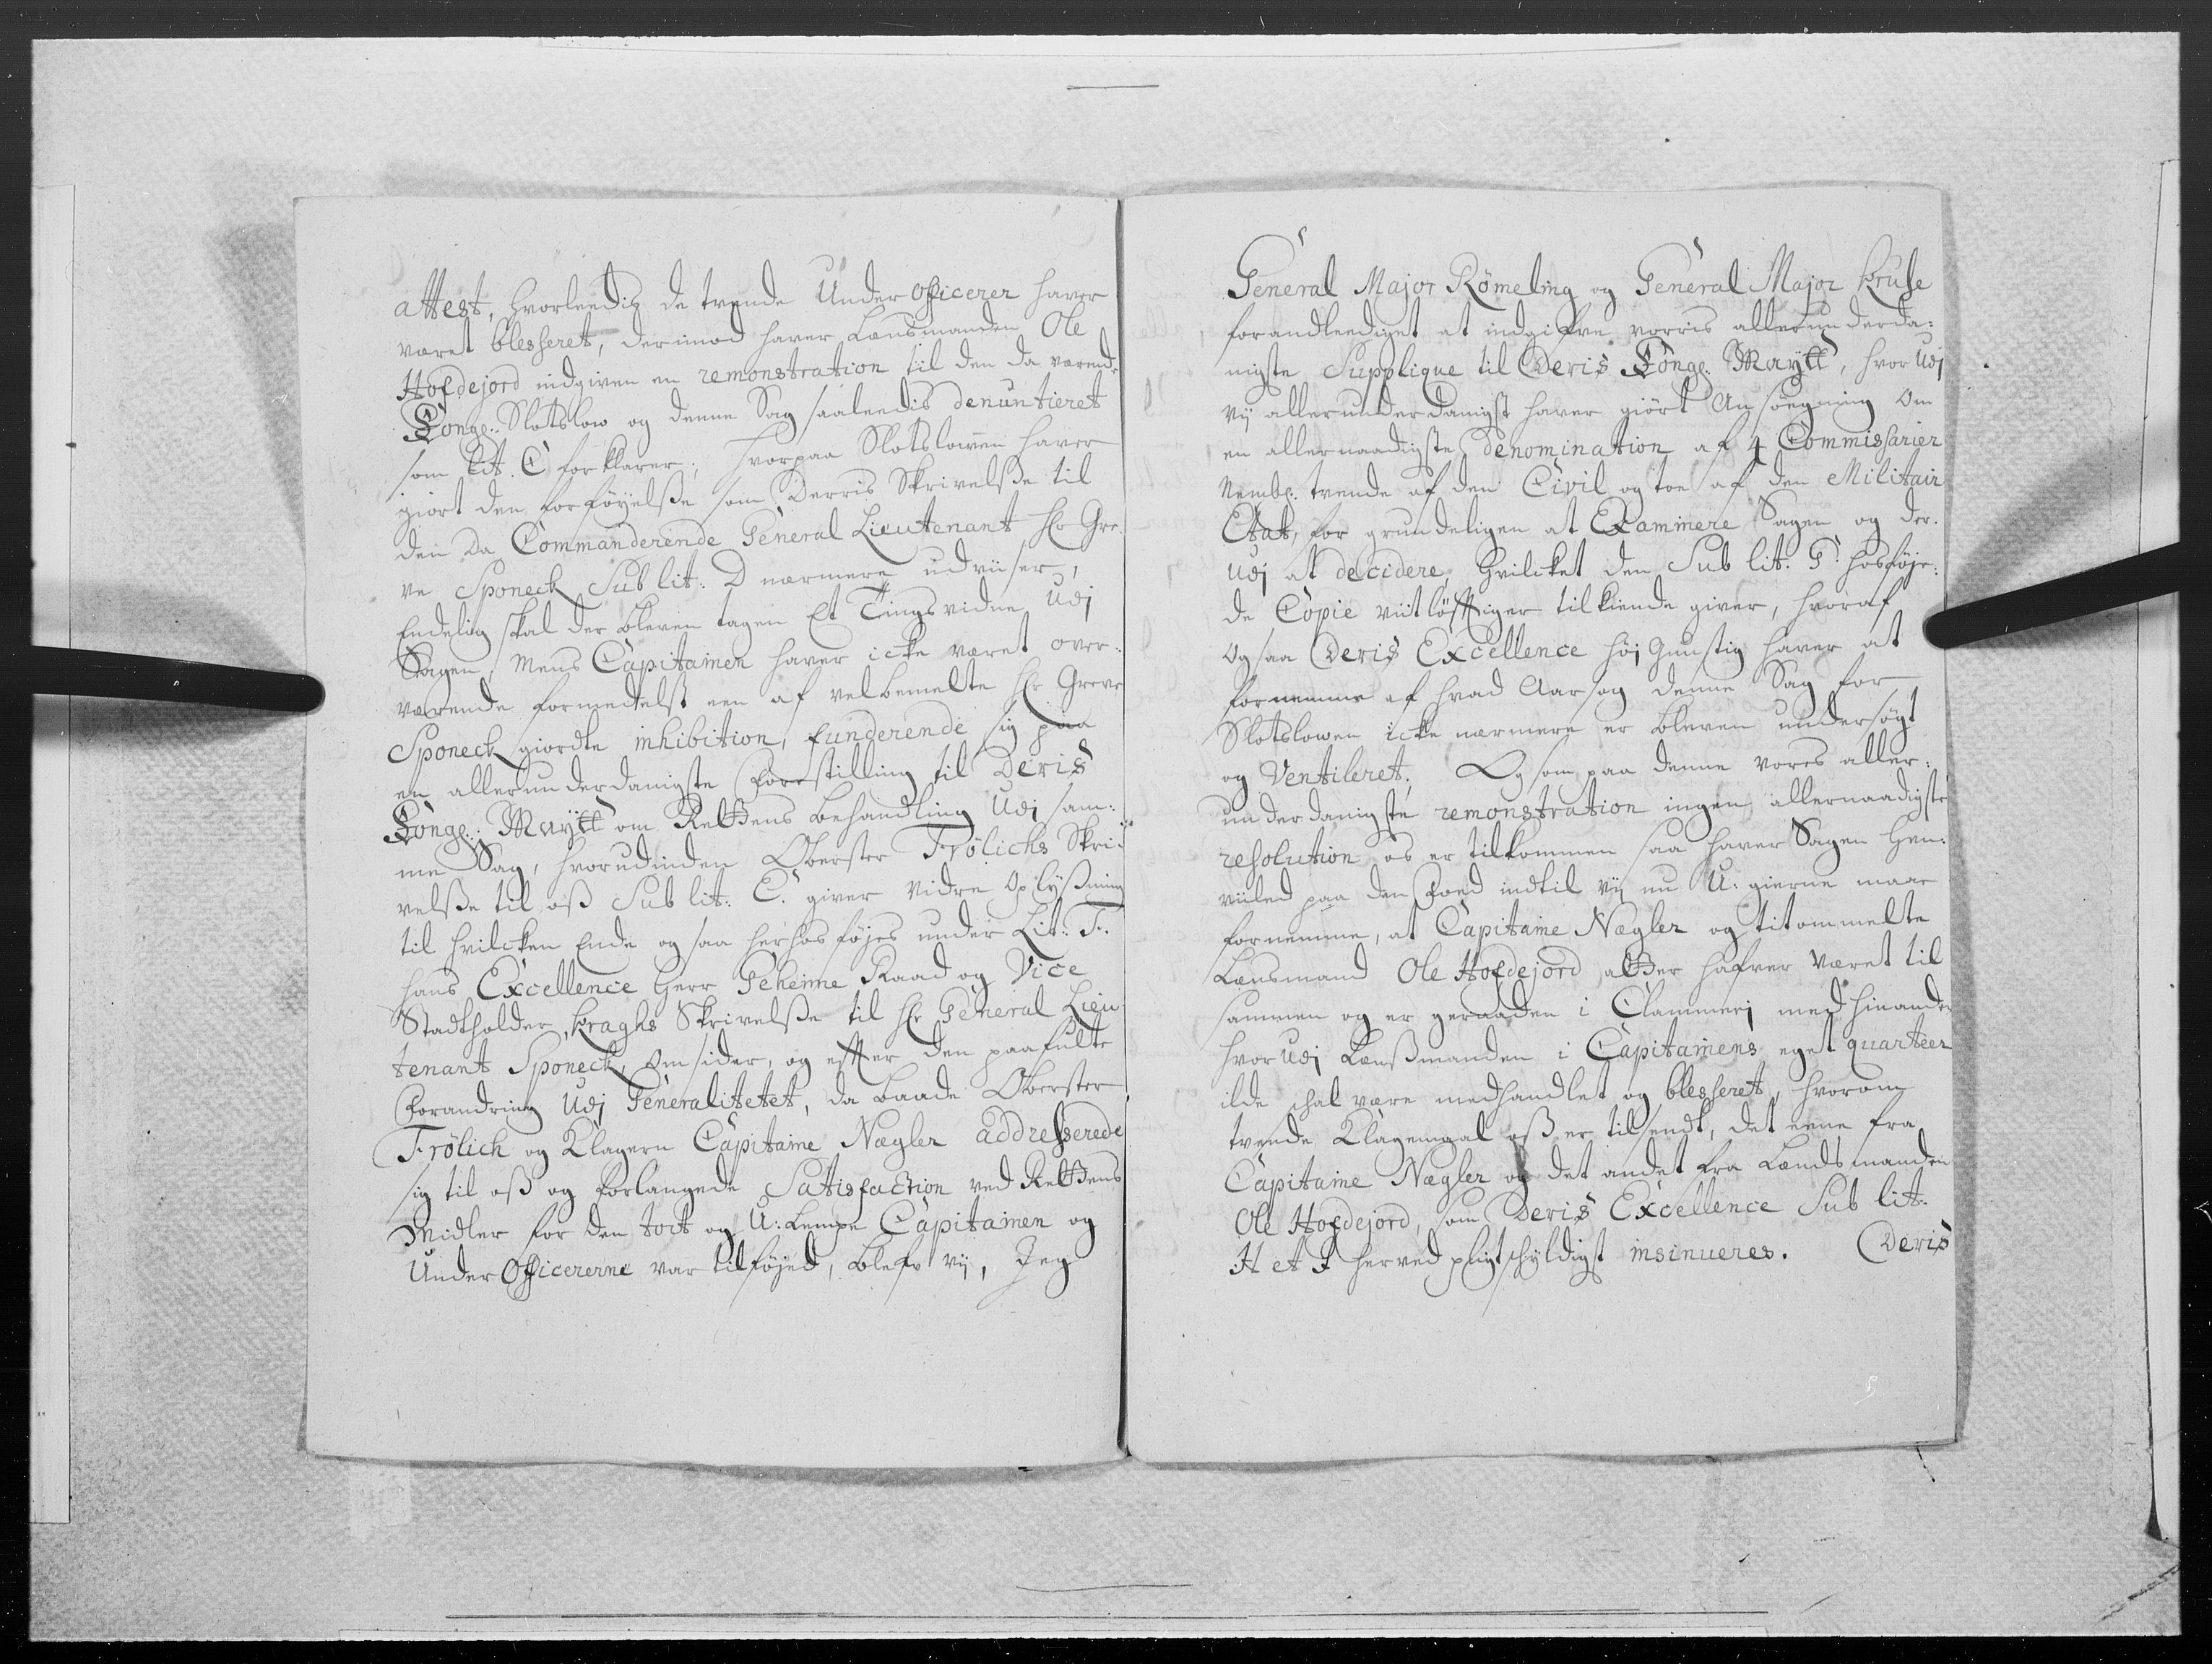 attest, hvorleedis de trende Under Officerer haver
været blesseret, derimod haver Lænsmanden Ole
Hofdejord indgiven en remonstration til den da værende
Konge:. Slotslow og denne Sag saaleedis denuntieret
som Lit. C forklarer; hvorpaa Slotslowen haver
giort den forføyelsse som Derris Skrivelsse til
den da Commanderende General Lieutenant Hr Gre
ve Sponeck Sub lit: D nærmere udviiser,
Endelig skal der bleven tagen Et Tingsvidne Udj
Sagen, Mens Capitainen haver icke været over-
værende formedelst een af velbemelte Hr Greve
Sponeck giordte inhibition, funderende sig paa
en allerunderdanigste Forestilling til Deris
Konge:. Maÿtt om Rettens behandling Udj sam:
me Sag, hvorudinden Oberster Frölichs Skri-
velsse til oss Sub lit: E. giver vidre Oplyssning
til hvilcken Ende og saa herhos føjes under Lit: F.
hans Excellence Herr Geheime Raad og Vice
Stadtholder Kraghs Skrivelsse til Hr General Lieu
tenant Sponeck, omsider, og effter den paafulte
Forandring Udj Generalitetet, da baade Oberster
Frölich og Klagern Capitaine Nægler addresserede
sig til oss og forlangede Satisfaction ved Rettens
Midler for den tort og U:lempe Capitainen og
Under Officererne var tilføjed, blefv vij, Jeg
General Major Römeling og General Major Kruse
forandleediget at indgifve vorris allerunderda-
nigste Supplique til Deris Konge: Maytt, hvor Udj
vij allerunderdanigst haver giört Ansøegning om
en allernaadigste denomination af 4 Commissarier
Nembl. trende af den Civil og toe af den Militair
Etat, for grundeligen at Examinere Sagen og der-
Udj at decidere, hvilcket den Sub lit. G. hosføje-
de Copie viitløfftiger tilkiende giver, hvoraf
og saa Deris Excellence høj Gunstig haver at
fornemme af hvad Aarsag denne Sag for
Slotslowen icke nærmere er bleven undersøgt
og Ventileret; Og som paa denne vores aller-
underdanigste remonstration ingen allernaadigste
resolution os er tilkommen saa haver Sagen Hen-
viiled paa den Foed indtil vij nu U:gierne maae
fornemme, at Capitaine Nægler og titommelte
Lænsmand Ole Hofdejord atter hafver Været til
sammen og er geraaden i Clammerj med hinanden
hvorUdj Lænssmanden i Capitainens eget quarteer
ilde skal være medhandlet og blesseret, hvorom
trende Klagemaal oss er tilsendt, det eene fra
Capitaine Nægler og det andet fra Lændsmanden
Ole Hofdejord, som Deris Excellence Sub lit.
H et I herved pligtskyldigst insinueres. Deris